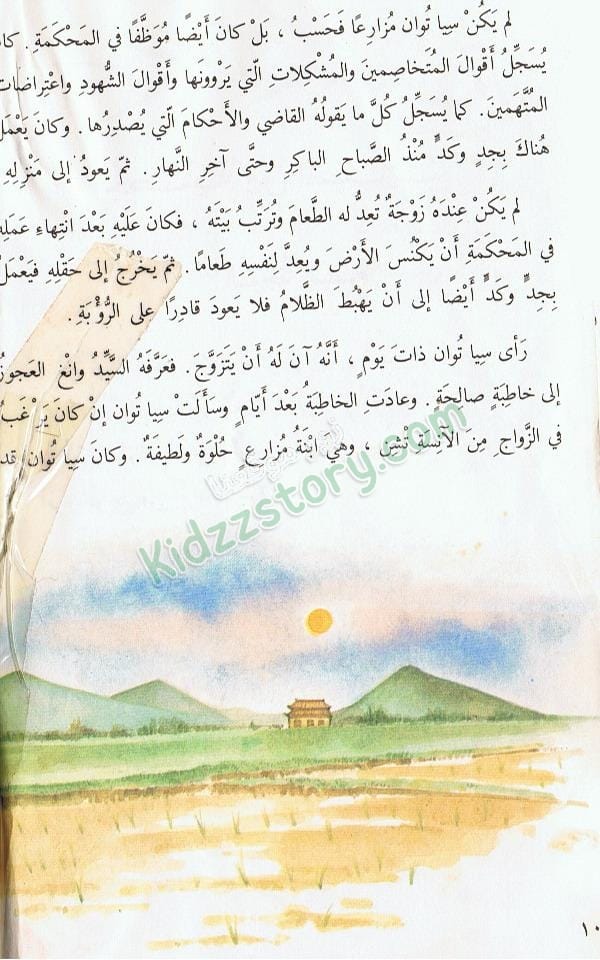 لم يَكُنْ سِيا تُوان مُزارِعًا فَحَسْبُ ، بَلْ كانَ أَيْضًا مُوَظَّفًا في المَحْكَمَةِ .
يُسَجِّلُ أَقْوالَ المُتَخاصِمينَ والمُشْكِلاتِ الّتي يَرْوُونَها وأَقْوالَ الشُّهودِ واعْتِراضاتِ
المُتَّهَمينَ . كما يُسَجِّلُ كُلَّ ما يَقولُهُ القاضي والأَحْكامَ الّتي يُصْدِرُها . وكانَ يَعْمَلُ
هُناكَ بِجِدٍ وكَدٍّ مُنْذُ الصَّباحِ الباكِرِ وحتَّى آخِرِ النَّهارِ . ثمّ يَعودُ إلى مَنْزِلِهِ
لم يَكُنْ عِنْدَهُ زَوْجَةٌ تُعِدُّ له الطَّعامَ وتُرَتِّبُ بَيْتَهُ ، فكانَ عَلَيْهِ بَعْدَ انْتِهاءِ عَمَلِهِ
في المَحْكَمَةِ أَنْ يَكْنُسَ الأَرْضَ ويُعِدَّ لِنَفْسِهِ طَعامًا . ثمّ يَخْرُجُ إلى حَقْلِهِ فيَعْمَلُ
بِجِدٍّ وكَدٍّ أَيْضًا إلى أَنْ يَهْبُطَ الظَّلامُ فلا يَعودَ قادِرًا على الرُّؤْيَةِ .
رَأى سِيا تُوان ذاتَ يَوْمٍ ، أَنَّهُ آنَ لَهُ أَنْ يَتَزَوَّجَ . فعَرَّفَهُ السَّيِّدُ وانْغ العَجوزُ
إلى خاطِبَةٍ صالِحَةٍ . وعادَتِ الخاطِبَةُ بَعْدَ أَيّامٍ وسَأَلَتْ سِيا تُوان إنْ كانَ يَرْغَبُ
في الزَّواجِ مِنَ الآنِسَةِ تْشِن ، وهي ابْنَةُ مُزارِعٍ حُلْوَةٌ ولَطيفَةٌ . وكانَ سِيا تُوان قد
Kidzzstory.com
١٠